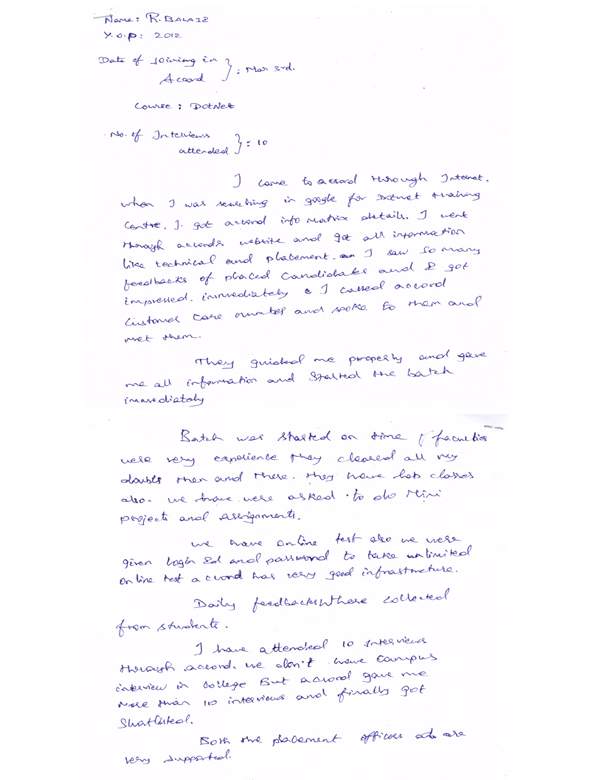 Name: R. BALAJI
Y.O.P: 2012
Date of Joining in
Accord } : Mar 3rd.
Course : DotNet
No. of Interviews
attended } : 10
I came to accord through Internet.
when I was searching in google for Dotnet training
Centre. I got accord info matrix details. I went
through accords website and got all information
like technical and placement. I saw so many
feedbacks of placed candidates and I got
impressed. immediately I called accord
Customer care number and spoke to them and
met them.
They guided me properly and gave
me all information and started the batch
immediately
Batch was started on time faculties
were very experience they cleared all my
doubts then and there. they have lab classes
also. we have were asked to do Mini
projects and assignments.
we have online test also we were
given login Id and password to take unlimited
online test accord has very good infrastructure.
Daily feedbacks where collected
from students.
I have attended 10 interviews
through accord. we don't have campus
interview in college But accord gave me
more than 10 interviews and finally got
Shortlisted.
Both the placement officers are
very supported.